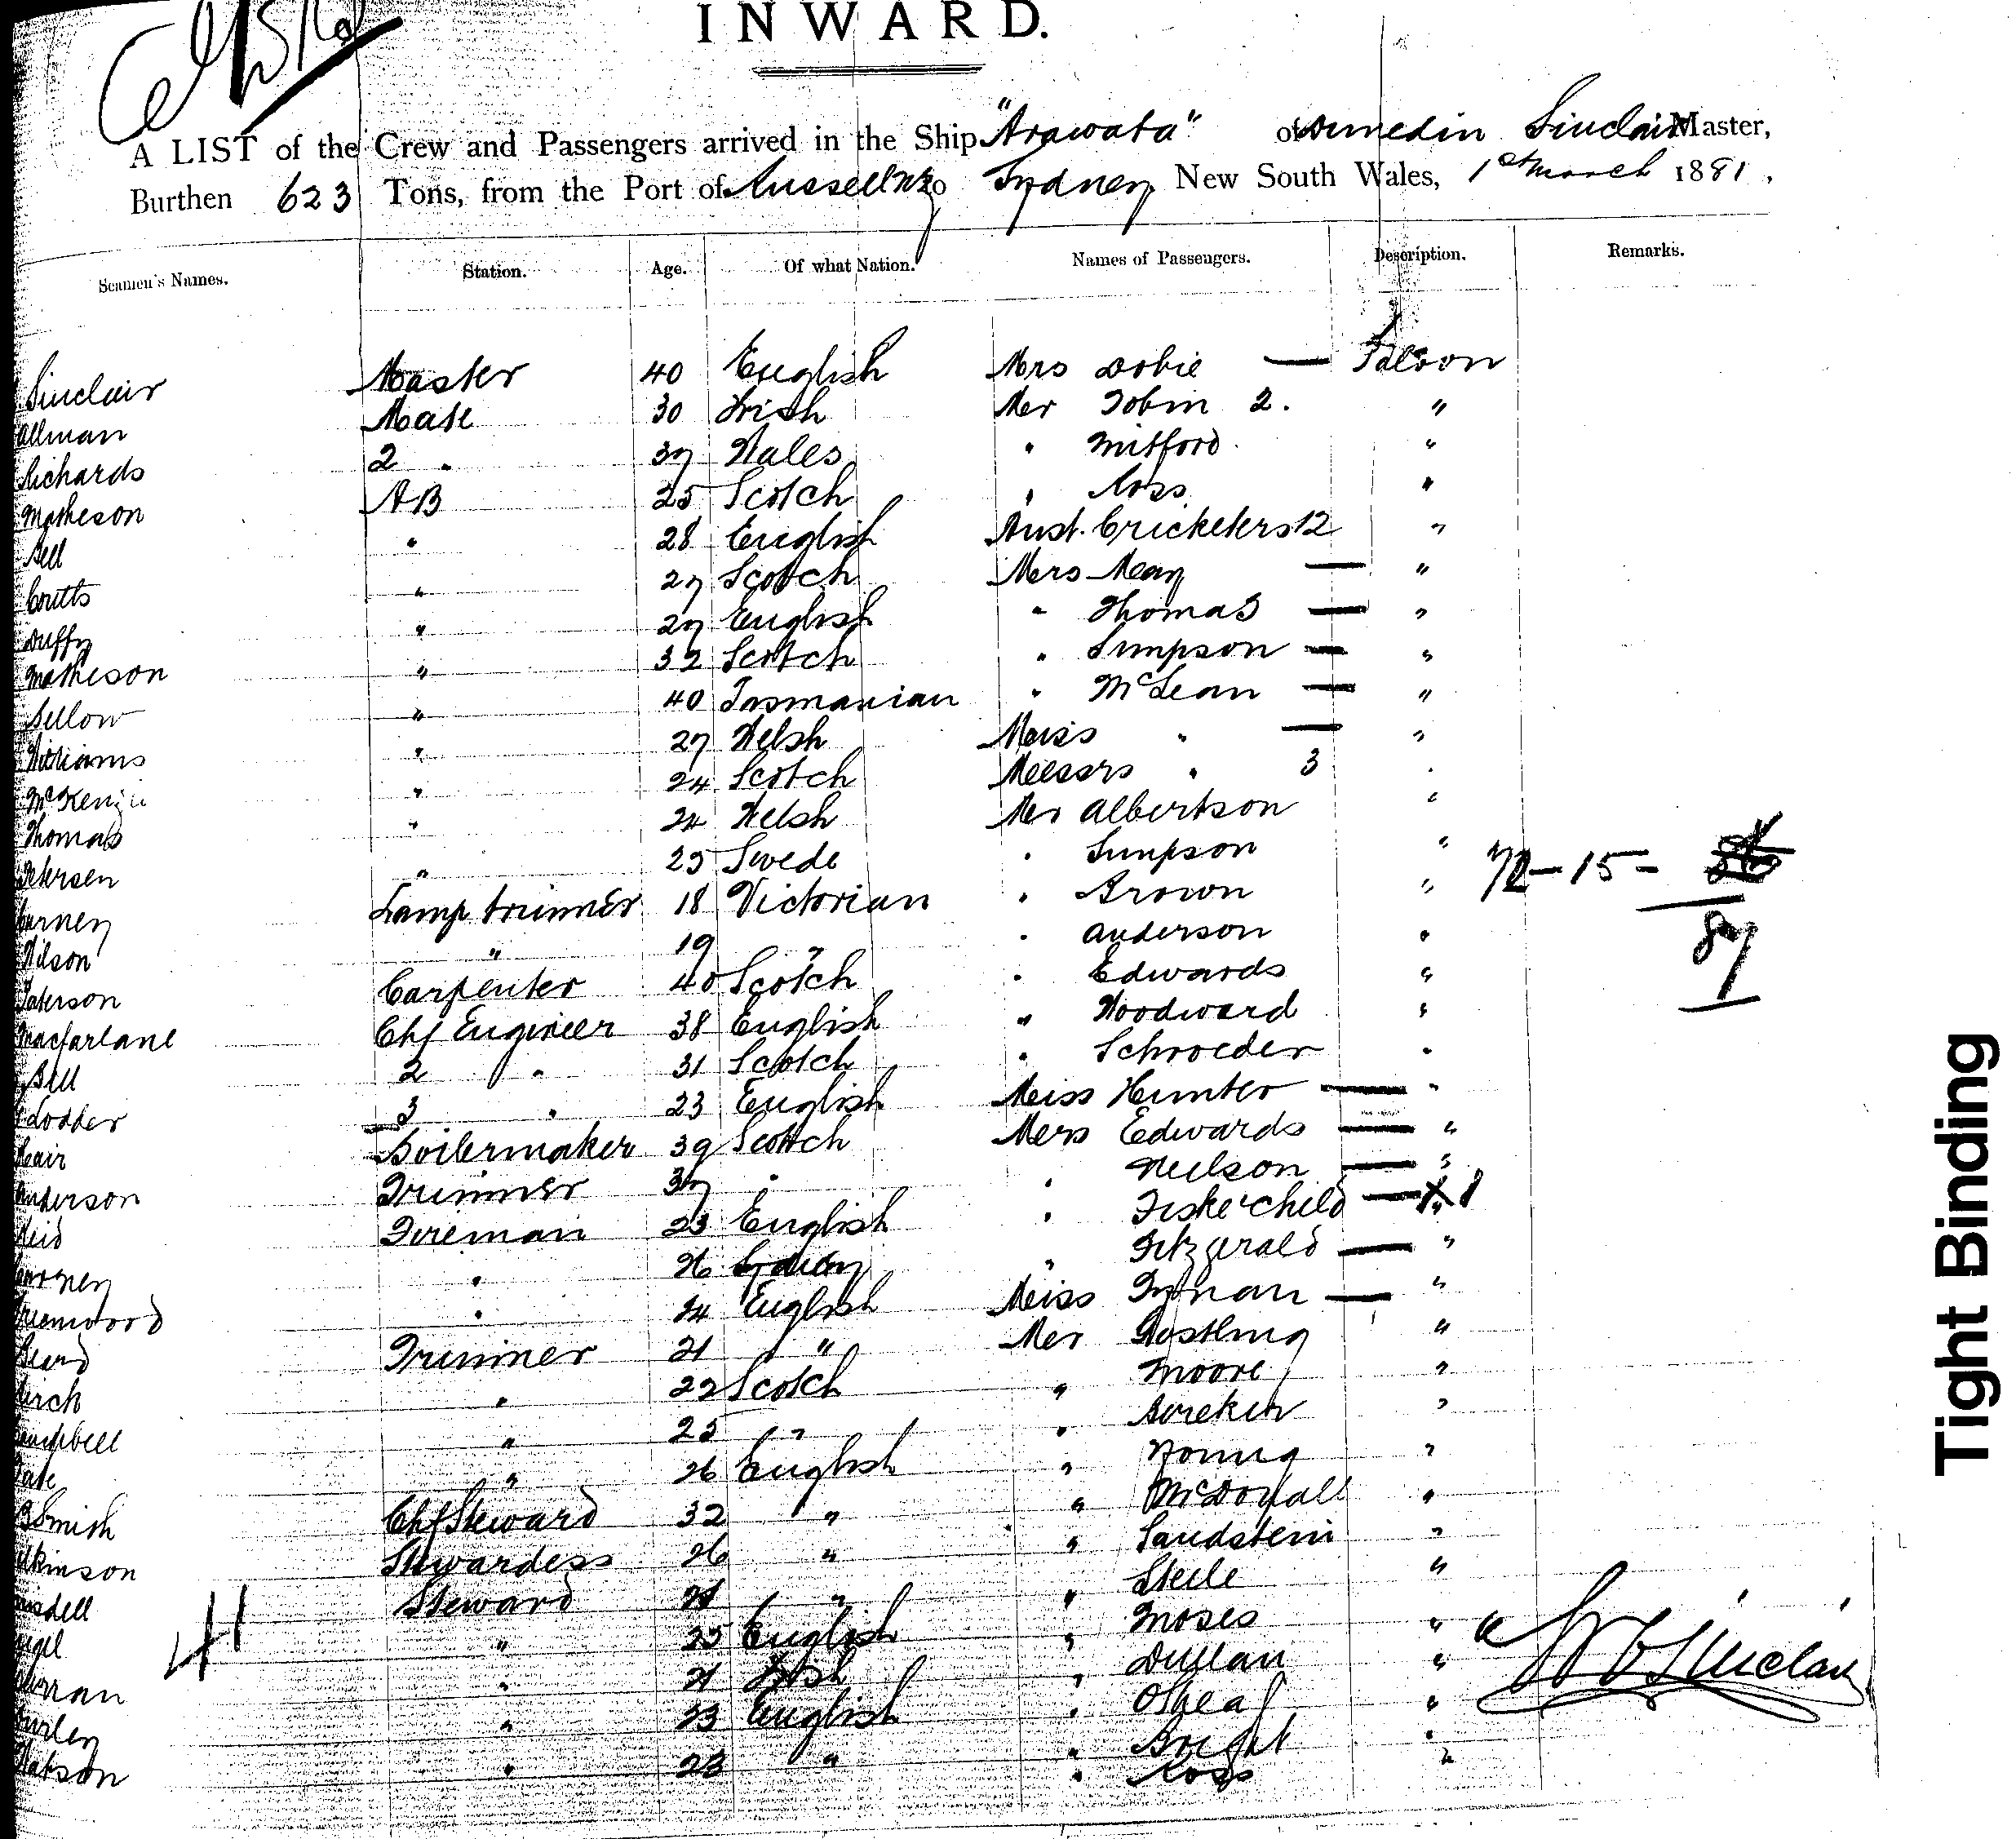 INWARD.
A LIST of the Crew and Passengers arrived in the Ship "Arawata" of Dunedin Sinclair Master,
Burthen 623 Tons, from the Port of Russell NZ to Sydney New South Wales, 1st March 1881,
Seamen's Names. Station. Age. Of what Nation. Names of Passengers. Description. Remarks.
Sinclair Master 40 English Mrs Dobie — Saloon
Allman Mate 30 Irish Mr Tobin 2. "
Richards 2 " 37 Wales " Mitford "
Matheson AB 25 Scotch " Ross "
Bell " 28 English Aust. Cricketers 12 "
Coutts " 27 Scotch Mrs May — "
Duffy " 27 English " Thomas — "
Matheson " 32 Scotch " Simpson — "
Bellow " 40 Tasmanian " McLean — "
Williams " 27 Welsh Miss " — "
McKenzie " 24 Scotch Messrs " 3 "
Thomas " 24 Welsh Mr Albertson "
Petersen " 25 Swede " Simpson " 72 - 15 -
Lamp trimmer 18 Victorian " Brown " 87
Wilson " 19 " " Anderson "
Paterson Carpenter 40 Scotch " Edwards "
Macfarlane Chf Engineer 38 English " Woodward "
Bell 2 " 31 Scotch " Schroeder "
Lodder 3 " 23 English Miss Hunter — "
Boilermaker 39 Scotch Mrs Edwards — "
Anderson Trimmer 37 " " Neilson — "
Reid Fireman 23 English " Fiske & child — 1
" 26 Sydney " Fitzgerald — "
Greenwood " 24 English Miss Tynan — "
Beard Trimmer 21 " Mr Gostling "
" 22 Scotch " Moore "
Campbell " 25 " "
Tate " 26 English " Young "
Smith Chf Steward 32 " " McDougall "
Wilkinson Stewardess 26 " " Sandstein "
Steward 21 " " Steele "
" 25 English " Moses "
" 21 Irish " Dullan "
" 23 English " OShea "
Watson " 23 " " Bright "
" Ross "
41
W G Sinclair
Tight Binding